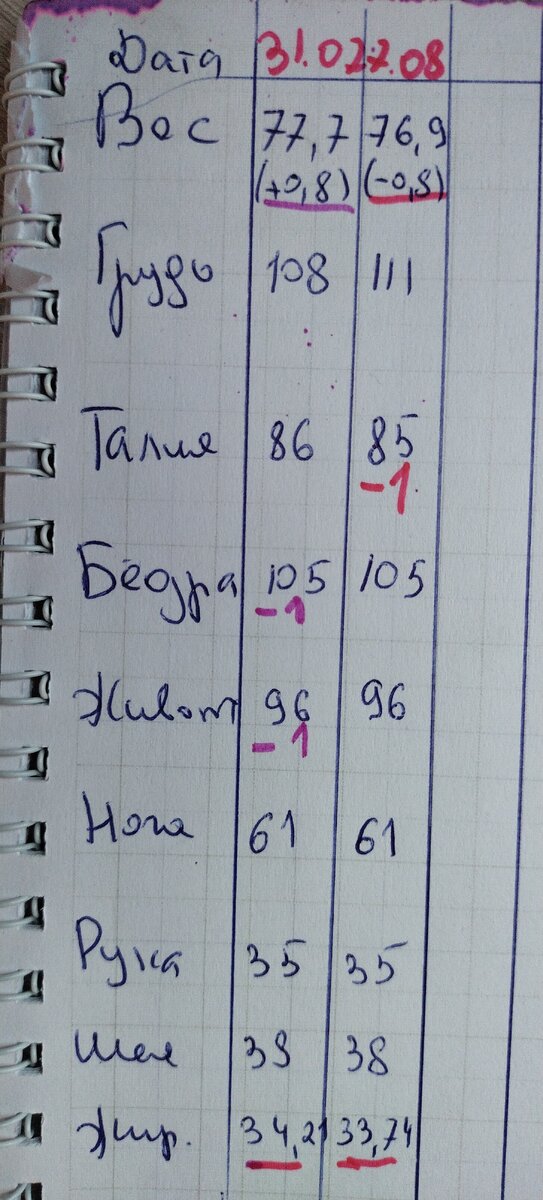 Дата 31.07 7.08
Вес 77,7 76,9
(+0,8) (-0,8)
Грудь 108 111
Талия 86 85
-1
Бёдра 105 105
-1
Живот 96 96
-1
Нога 61 61
Рука 35 35
Шея 39 38
Жир. 34,21 33,74